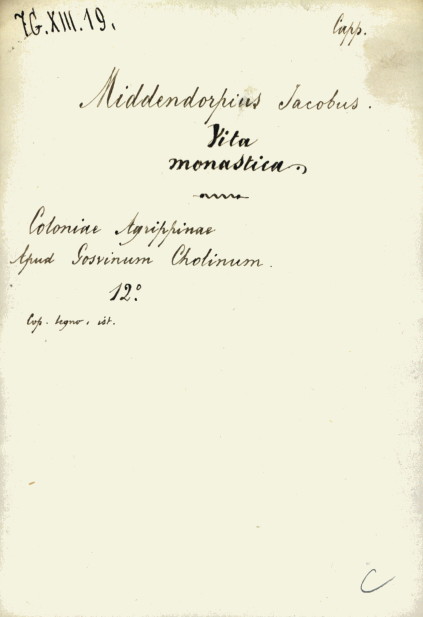 7G.XIII.19.
Capp.
Middendorpius Jacobus.
Vita
monastica
Coloniae Agrippinae
Apud Gosvinum Cholinum.
12°
Cop. legno, ist.
C